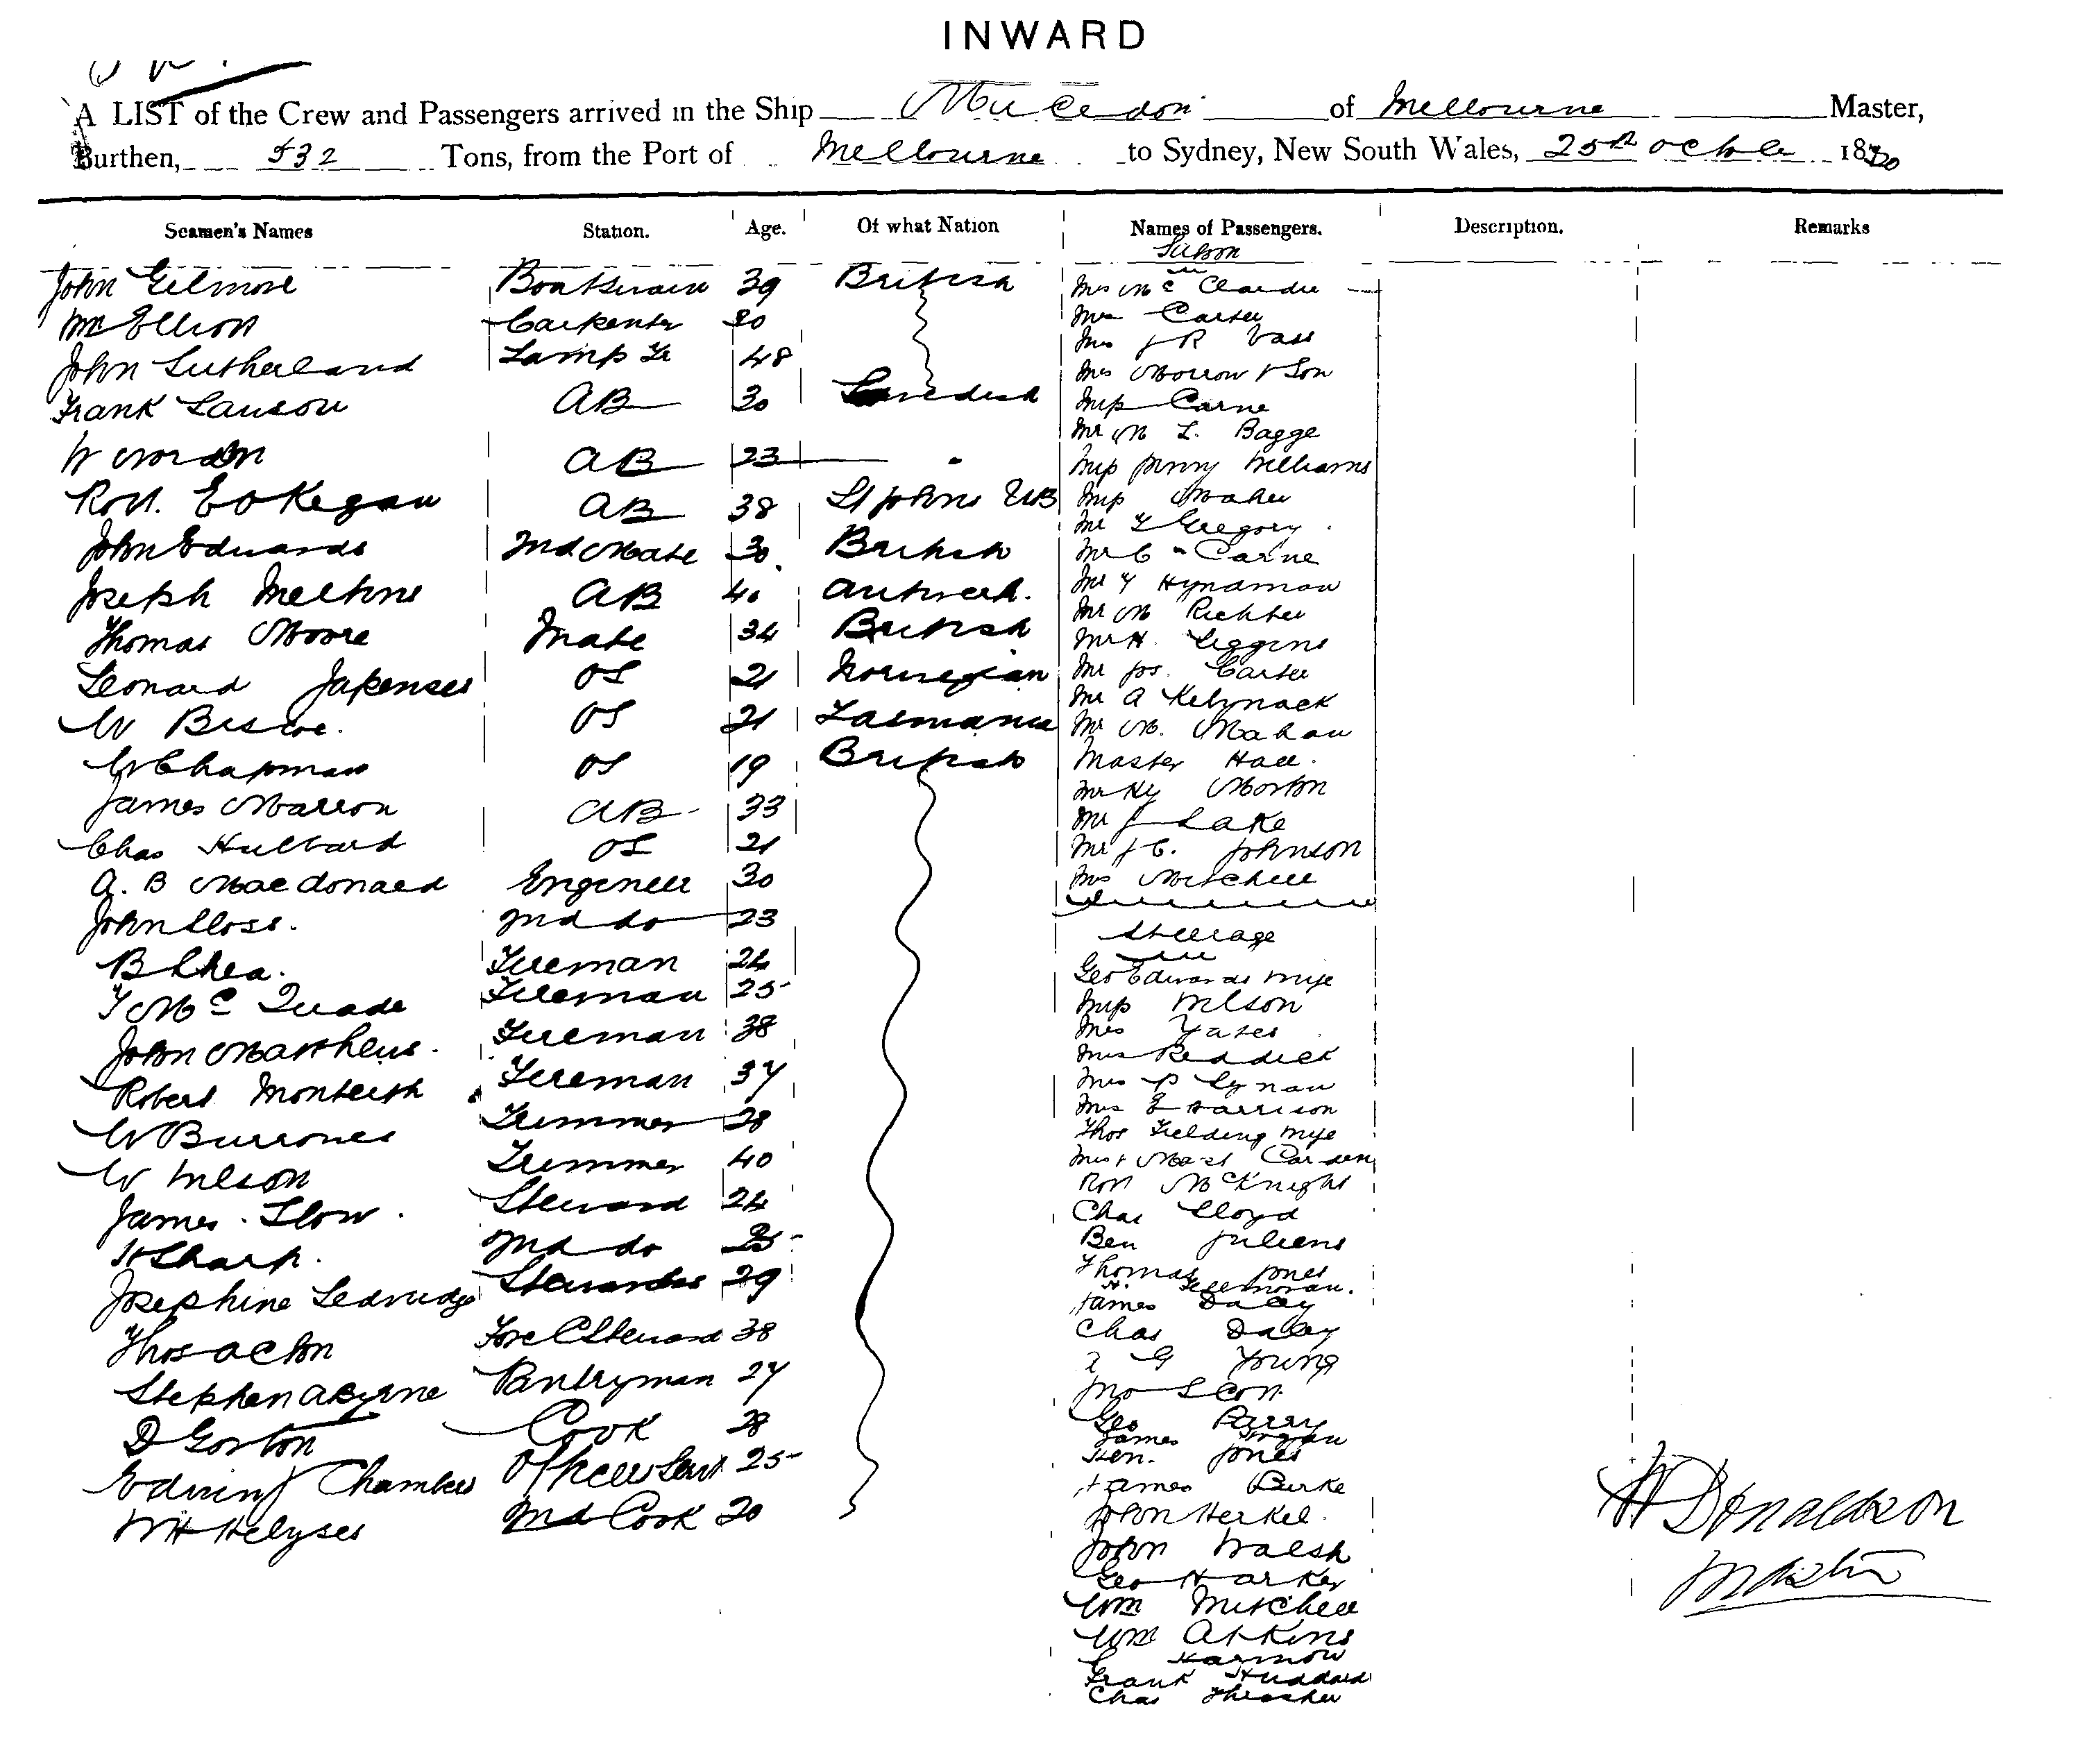 INWARD
A LIST of the Crew and Passengers arrived in the Ship Macedon of Melbourne Master,
Burthen, 532 Tons, from the Port of Melbourne to Sydney, New South Wales, 25th 18
Seamen's Names Station. Age. Of what Nation Names of Passengers. Description. Remarks
Saloon
John Gilmore Boatswain 39 British
Mrs Mc
Wm Elliott Carpenter
Mrs Carter
John Sutherland Lamp Tr 48
Mrs J R Vass
Mrs Morrow & Son
Frank Lauson AB 30 Swedish
Miss Carne
Mr M L. Bagge
W AB 23
Miss Jenny Williams
Robt. E OKegan AB 38 St Johns NB
Miss Maher
Mr T Gregory
John Edwards 2nd Mate 30 British
Mr C Carne
Joseph AB 40
Mr T Hyndman
Mr M Richter
Thomas Moore Mate 34 British
Mr H. Liggins
Leonard OS 21 Norwegian
Mr Jos. Carter
Mr A Kelynack
W Briscoe. OS 21 Tasmania
Mr M. Mahon
W Chapman OS 19 British
Master Hall.
Mr Hy Morton
James Marron AB 33
Mr J Lake
Chas Hulbard OS 21
Mr J C. Johnson
A. B Macdonald Engineer 30
Mrs Mitchell
John Sloss. 2nd do 23
Steerage
B Shea. Fireman 24
Geo Edwards Wife
T Mc Quade Fireman 25
Miss Wilson
Mrs Yates
John Matthews. Fireman 38
Mrs Reddick
Robert Monteith Fireman 37
Mrs P Cynan
Mrs E Harrison
W Burrowes Trimmer 28
Thos Fielding Wife
W Wilson Trimmer 40
Mrs & Mast
Robt McKnight
James. Slow. Steward 24
Chas Lloyd
H Sharp. 2nd do
Ben Juliens
Thomas Jones
Josephine Stewardess 29
H.
James Daley
Thos Acton Fore C Steward 38
Chas Daley
G Young
Stephen A Byrne Pantryman 27
Jno Scott
D Gorton Cook 28
Geo Parry
James
Hen. Jones
Edwin J Chambers Officers Servt 25
James Burke
W H Helyses 2nd Cook 20
John Herkel.
John Walsh
Geo Harker
Wm Mitchell
Wm Atkins
Frank Huddard
Chas Thrasher
H Donaldson
Master